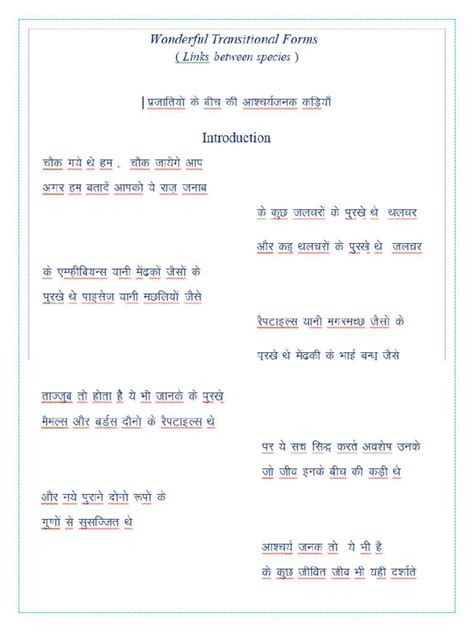 Wonderful Transitional Forms
( Links between species )
प्रजातियों के बीच की आश्चर्यजनक कड़ियाँ
Introduction
चौंक गये थे हम , चौंक जायेगे आप
अगर हम बतादें आपको ये राज जनाब
के कुछ जलचरों के पुरखे थे थलचर
और कइ थलचरों के पुरखे थे जलचर
के एम्फीबियन्स यानी मेंढकों जैसों के
पुरखे थे पाइसेज यानी मछलियों जैसे
रैपटाइल्स यानी मगरमच्छ जैसों के
पुरखे थे मेंढकी के भाई बन्धु जैसे
ताज्जुब तो होता है ये भी जानके के पुरखे
मैमल्स और बर्डस दौनो के रैपटाइल्स थे
पर ये सच सिद्ध करते अवशेष उनके
जो जीव इनके बीच की कड़ी थे
और नये पुराने दोनो रूपों के
गुणों से सुसज्जित थे
आश्चर्य जनक तो ये भी है
के कुछ जीवित जीव भी यही दर्शाते